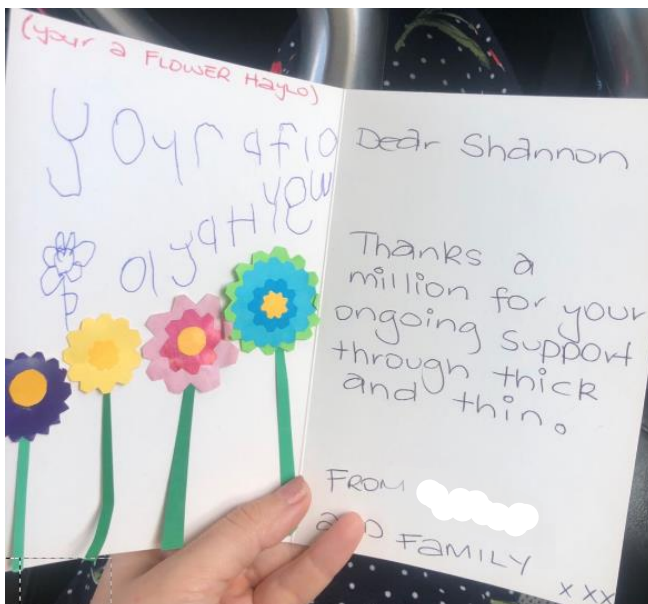 (your a FLOWER Haylo)
yoyr afio
olyaHYew
Dear Shannon
Thanks a
million for your
ongoing support
through thick
and thin.
FROM
AND FAMILY
x xx